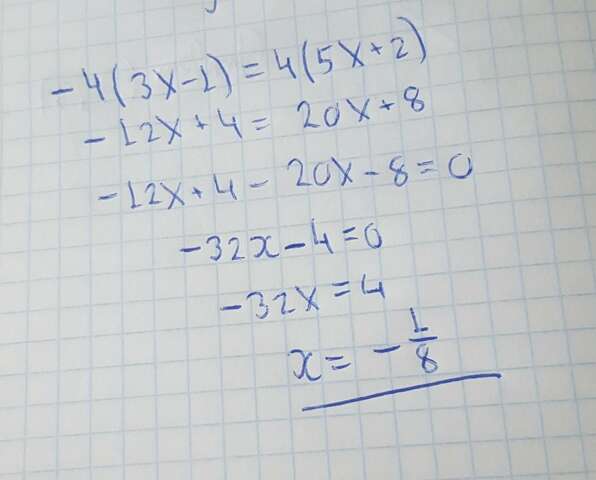 -4(3x-1)=4(5x+2)
-12x+4= 20x+8
-12x+4- 20x-8=0
-32x-4=0
-32x=4
x= -1/8